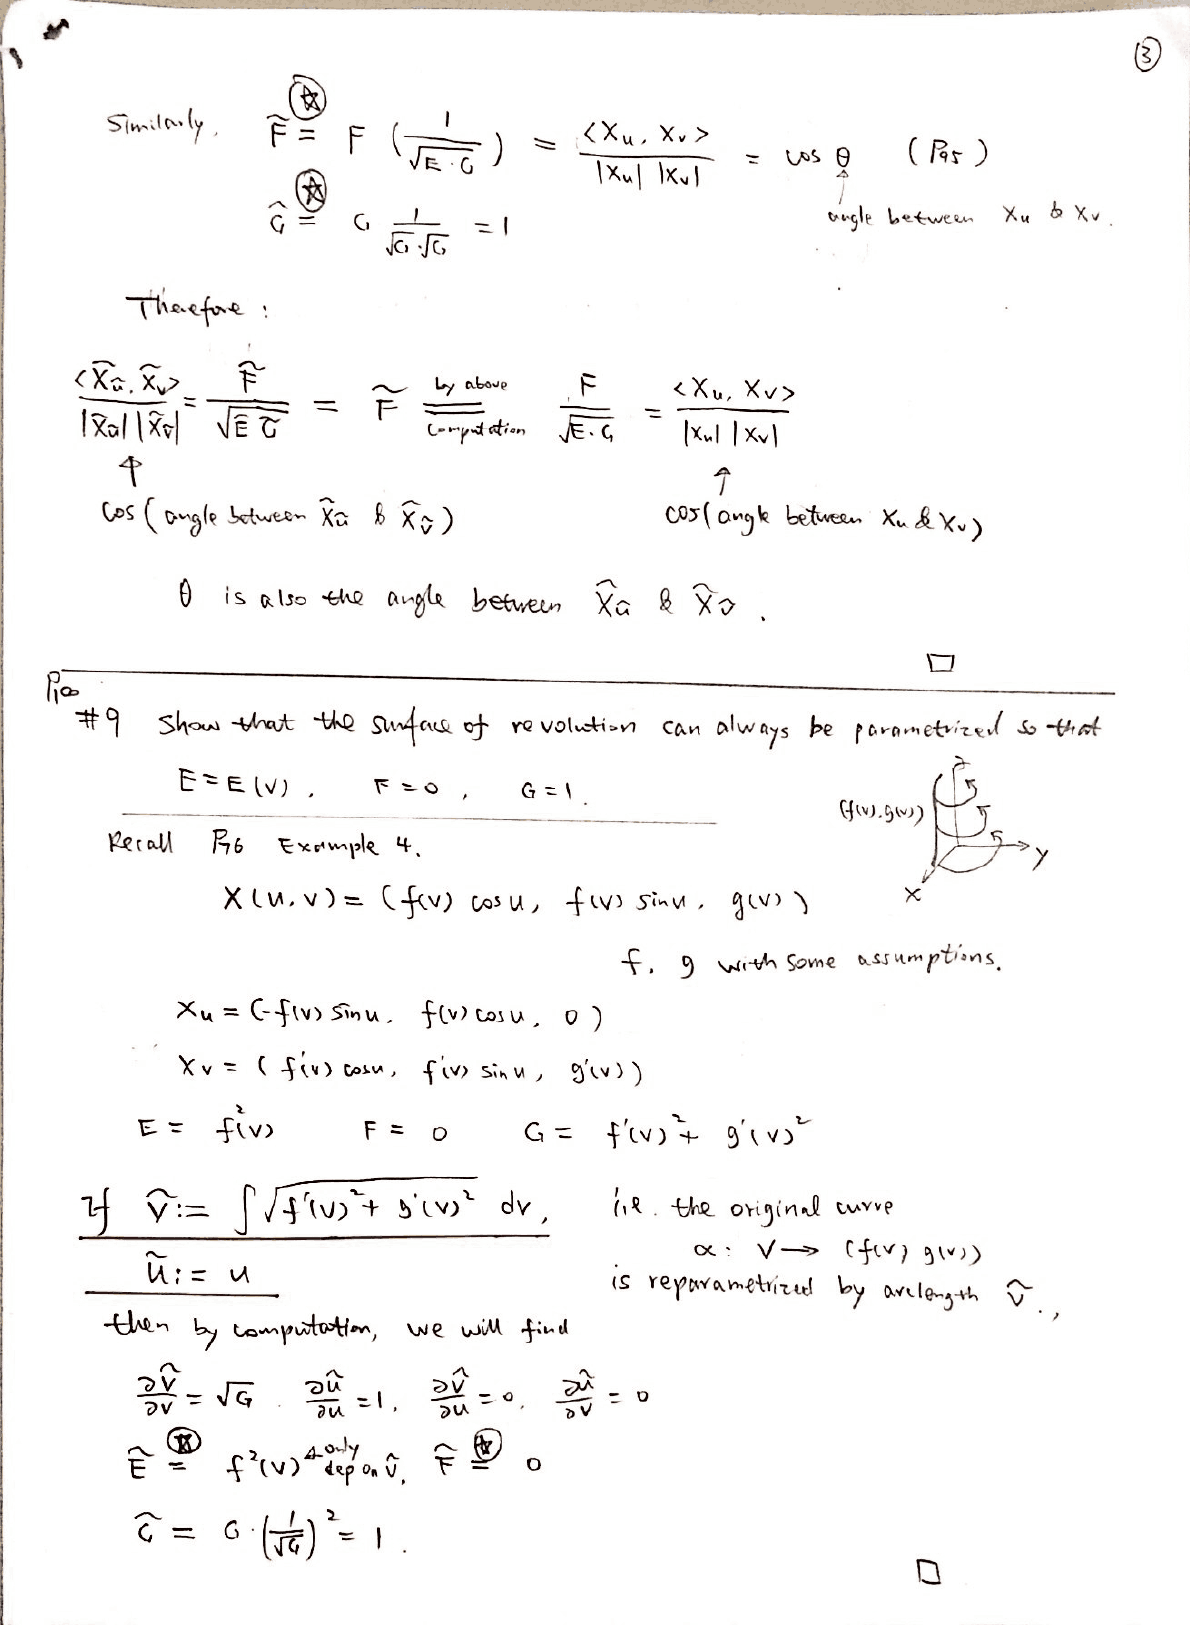 ③
Similarly, F̃ =(☆) F (1/(√E·G)) = <Xu, Xv>/(|Xu| |Xv|) = cos θ (P95)
G̃ =(☆) G 1/(√G·√G) = 1
angle between Xu & Xv.
Therefore :
<X̃ũ, X̃ṽ>/(|X̃ũ| |X̃ṽ|) = F̃/√(Ẽ G̃) = F̃ = (by above computation) F/√(E·G) = <Xu, Xv>/(|Xu| |Xv|)
↑ ↑
cos (angle between X̃ũ & X̃ṽ) cos(angle between Xu & Xv)
θ is also the angle between X̃ũ & X̃ṽ.
□
P100
#9 Show that the surface of revolution can always be parametrized so that
E=E(v), F=0, G=1.
(f(v), g(v)) z y x
Recall P76 Example 4.
X(u,v) = (f(v) cos u, f(v) sin u, g(v))
f, g with some assumptions.
Xu = (-f(v) sin u, f(v) cos u, 0)
Xv = (f'(v) cos u, f'(v) sin u, g'(v))
E = f²(v) F = 0 G = f'(v)² + g'(v)²
If ṽ := ∫√(f'(v)² + g'(v)²) dv, i.e. the original curve
α: v → (f(v) g(v))
ũ := u
is reparametrized by arclength ṽ.,
then by computation, we will find
∂ṽ/∂v = √G. ∂ũ/∂u = 1, ∂ṽ/∂u = 0, ∂ũ/∂v = 0
Ẽ =(☆) f²(v) ← only dep on ṽ, F̃ =(☆) 0
G̃ = G·(1/√G)² = 1.
□